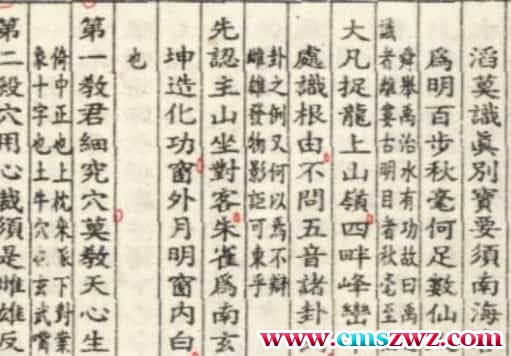 滔莫識眞別寶要須南海
爲明百步秋毫何足數仙
舜舉禹治水有功故曰禹
識者離婁古明目者秋毫至
大凡捉龍上山嶺四畔峰巒
處識根由不問五音諸卦
卦之例又何以爲不辯
雌雄發物影詎可東乎
先認主山坐對客朱雀爲南玄
坤造化功窗外月明窗內白
也
第一教君細究穴莫教天心生
倚中正也上枕來下對業
象十字也土牛穴玄武嘴
第二段穴用心裁須是雌雄反
www.cmszwz.com